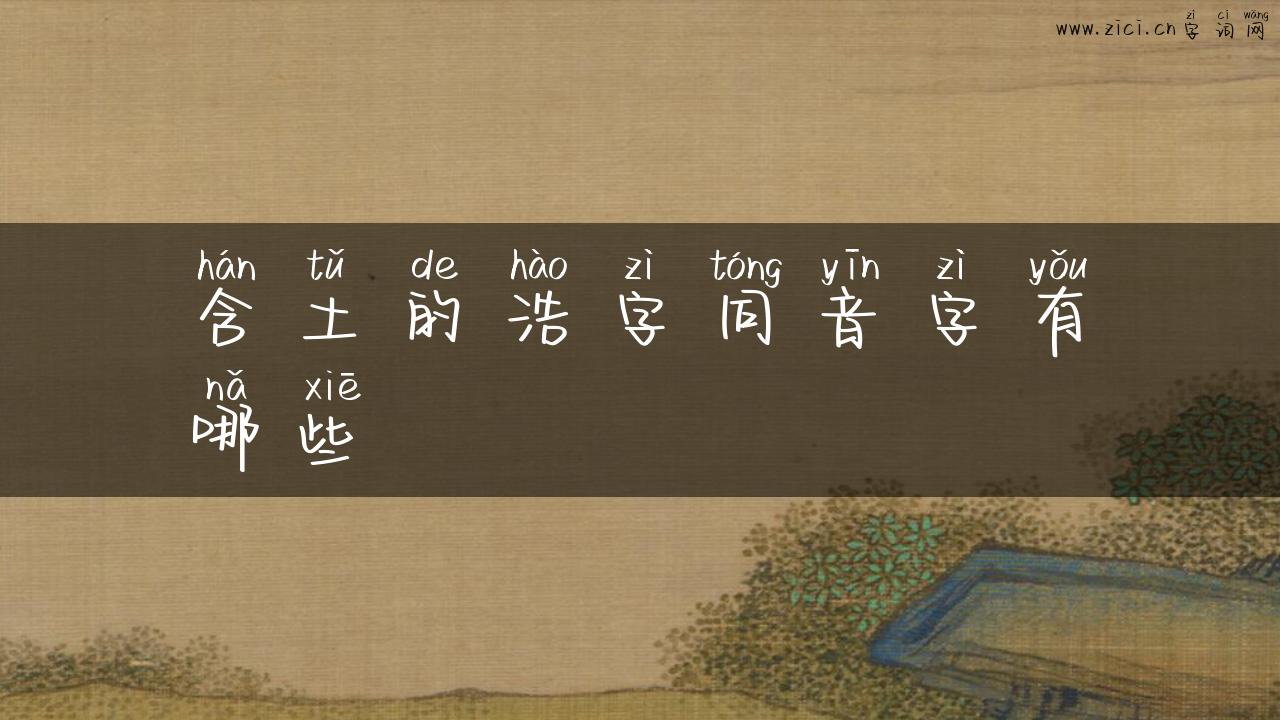 zì cí wǎng
www.zici.cn 字 词 网
hán tǔ de hào zì tóng yīn zì yǒu
含 土 的 浩 字 同 音 字 有
nǎ xiē
哪 些